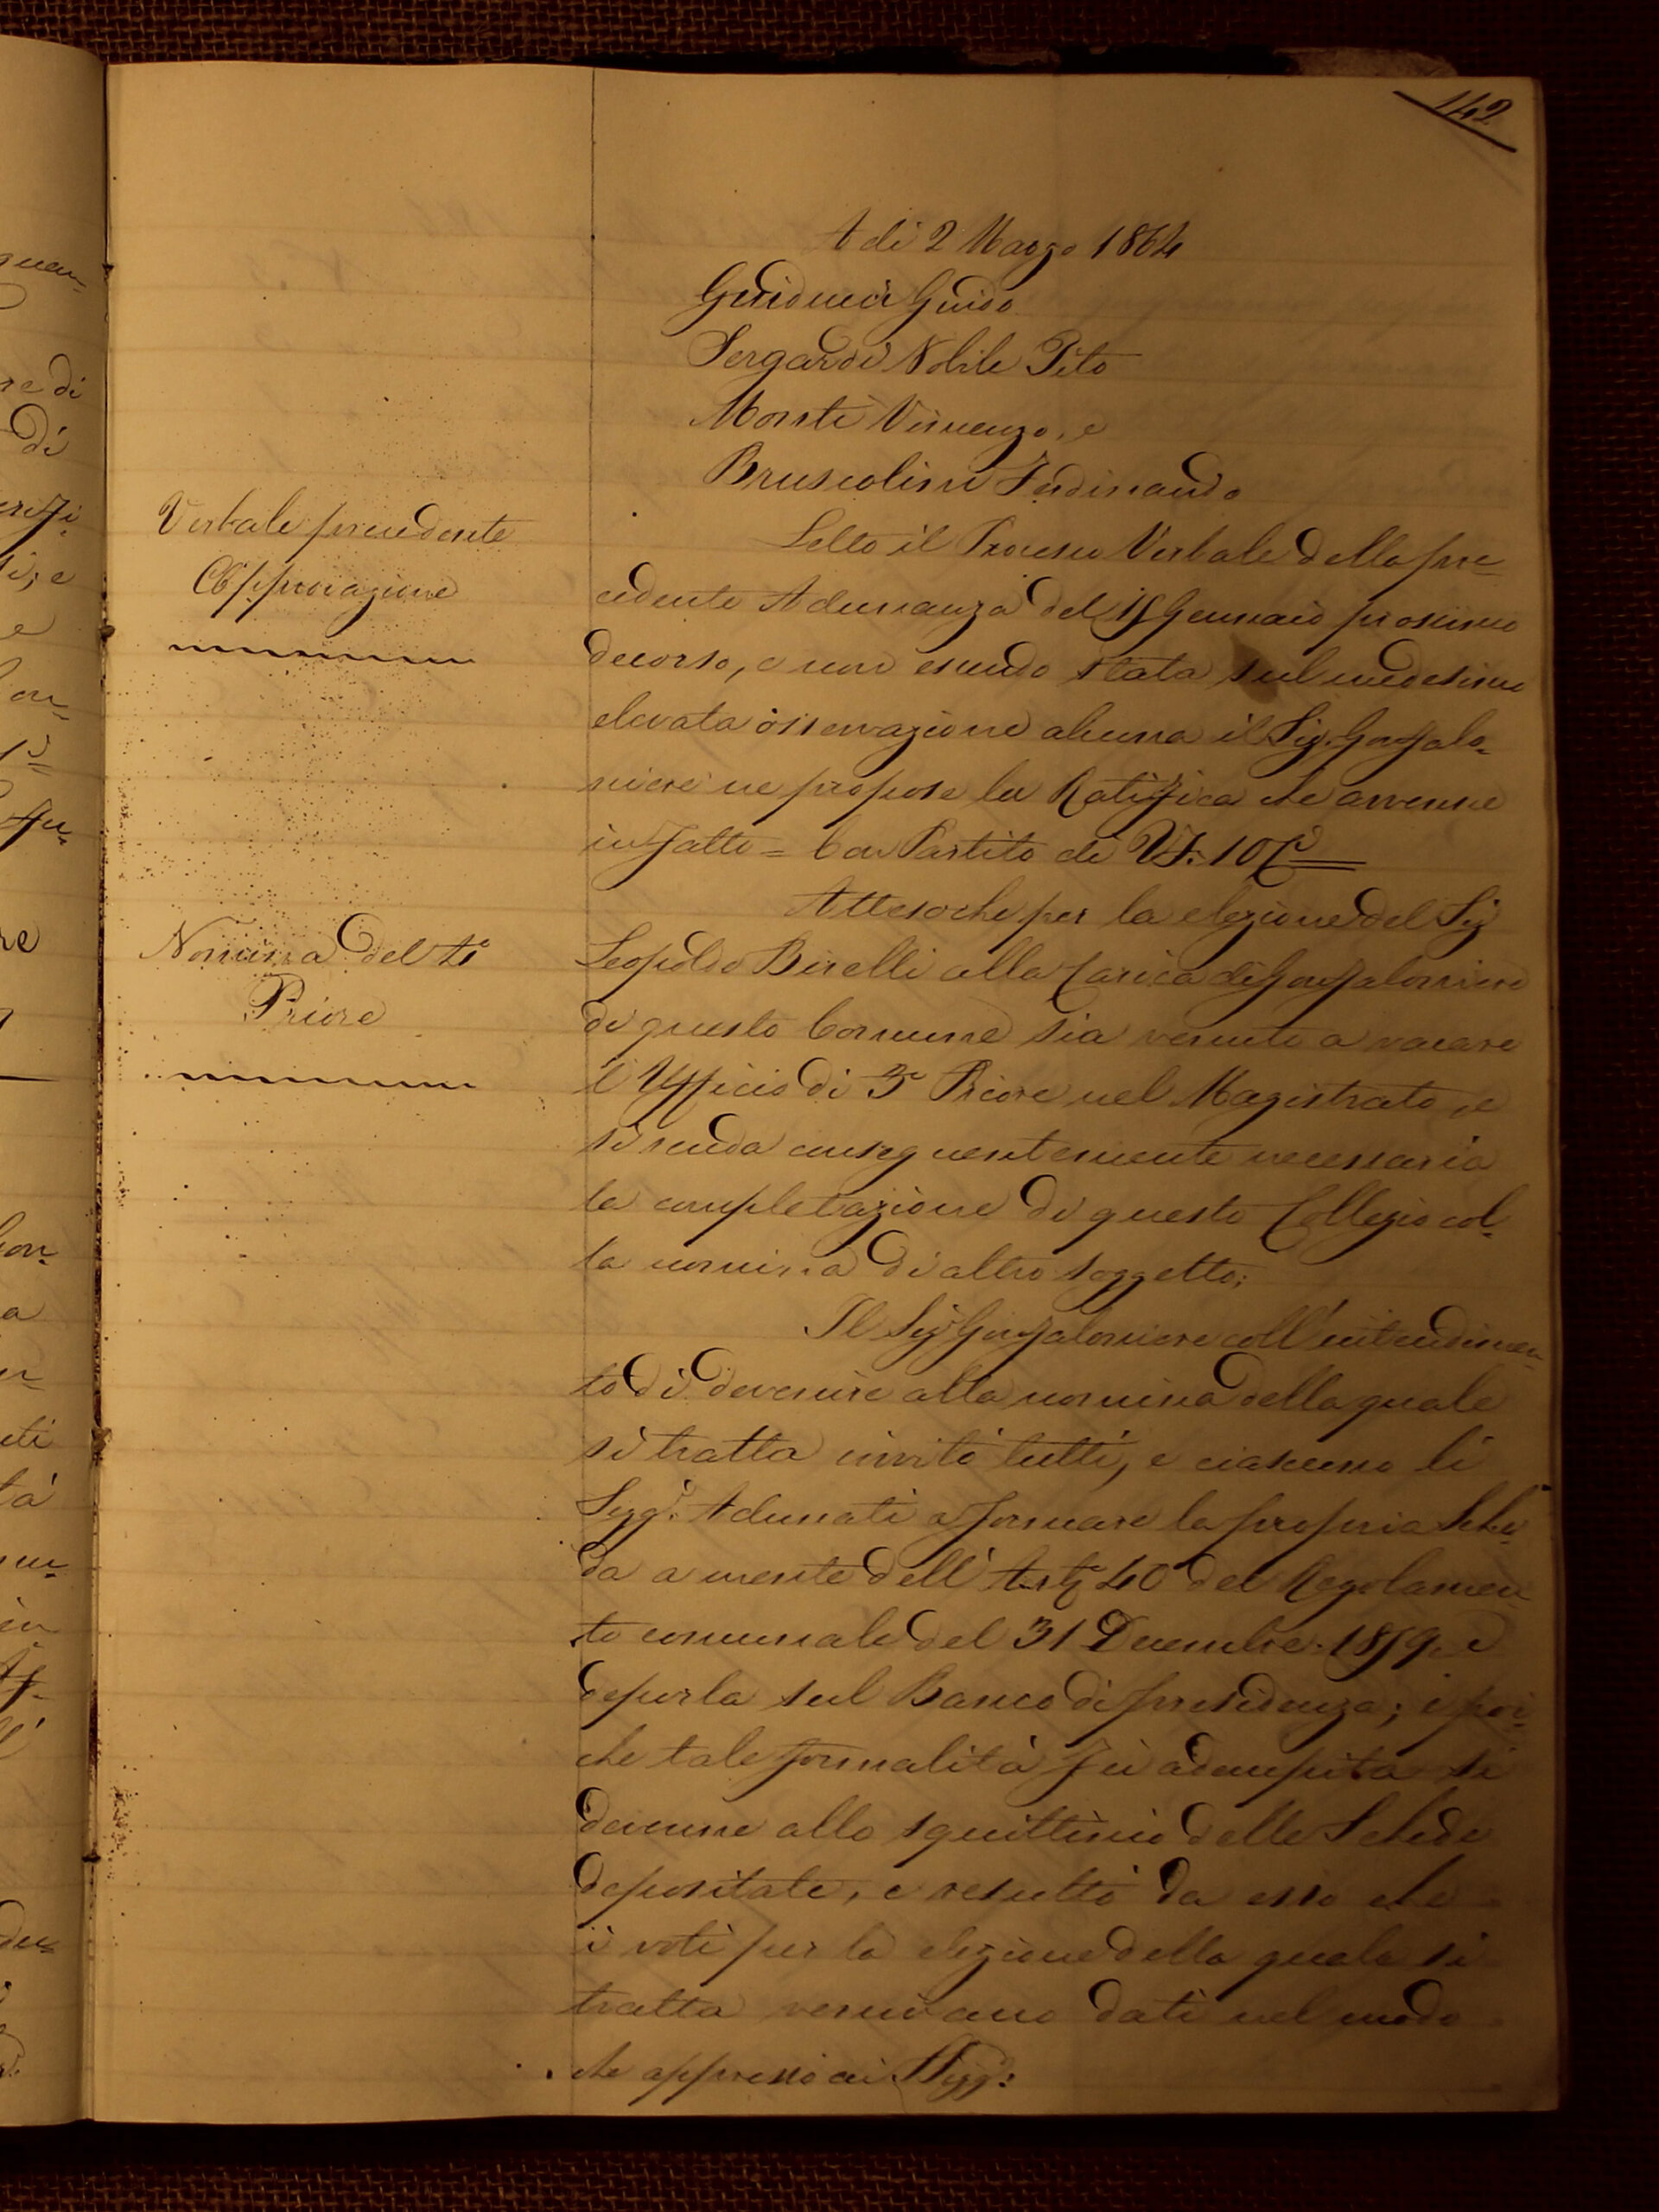 142
A di 2 Marzo 1864
Guiducci Guido
Sergardi Nobile Tito
Monti Vincenzo, e
Bruscolini Ferdinando
Verbale precedente
Approvazione
Letto il Processo Verbale della pre-
cedente Adunanza del 15 Gennaio prossimo
decorso, e non essendo stata sul medesimo
elevata osservazione alcuna il Sig. Gonfalo-
niere ne propose la Ratifica che avvenne
infatto = Con Partito di Vf. 10
Nomina del
Priore
Attesoche per la elezione del Sig
Leopoldo Birelli alla Carica di Gonfaloniere
di questo Comune sia venuto a vacare
l'Ufficio di 3º Priore nel Magistrato, e
si renda conseguentemente necessaria
la completazione di questo Collegio col-
la nomina di altro soggetto;
Il Sigr Gonfaloniere coll'intendimen-
to di devenire alla nomina della quale
si tratta invitò tutti, e ciascuno li
Sigg.i Adunati a formare la propria Sche-
da a mente dell'Art.º 40 del Regolamen-
to comunale del 31 Decembre 1859, e
deporla sul Banco di presidenza; e poi-
che tale formalità fù adempita si
devenne allo squittinio delle Schede
depositate, e resultò da esso che
i voti per la elezione della quale si
tratta venivano dati nel modo
che appresso ai Sigg.i: